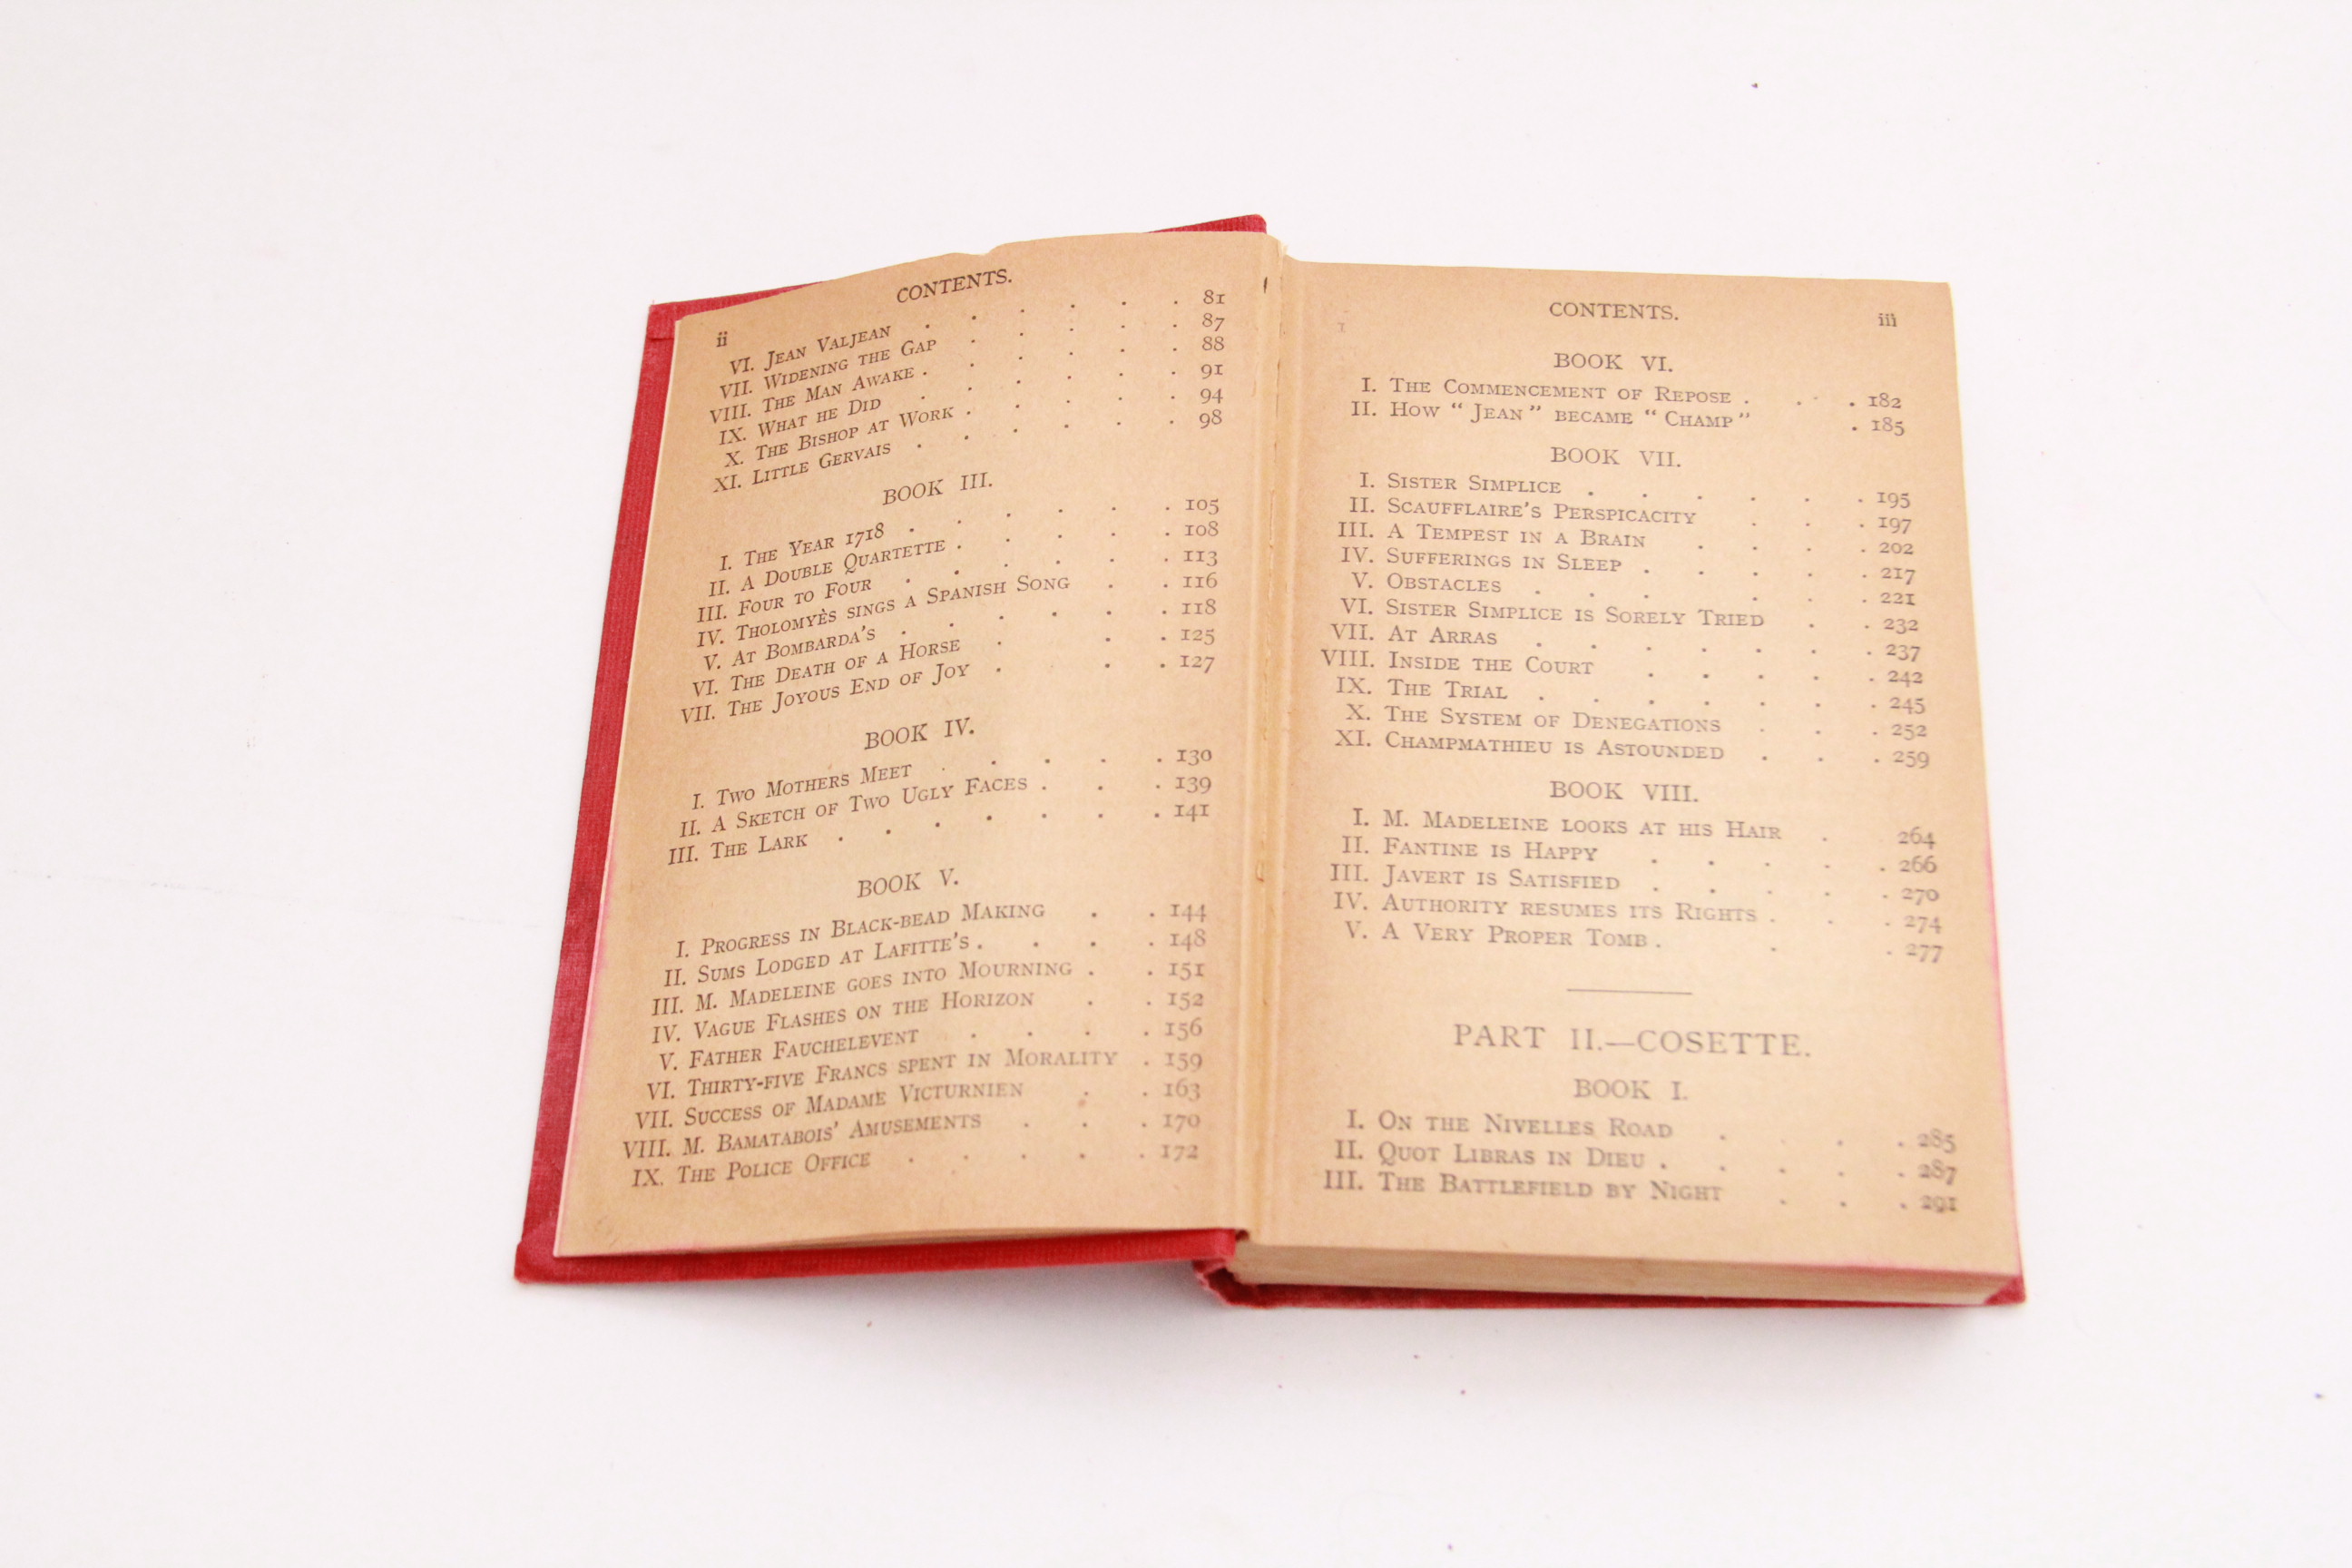 ii
CONTENTS.
VI. JEAN VALJEAN . . . . . . 81
VII. WIDENING THE GAP . . . . . 87
VIII. THE MAN AWAKE . . . . . . 88
IX. WHAT HE DID . . . . . . 91
X. THE BISHOP AT WORK . . . . . 94
XI. LITTLE GERVAIS . . . . . . 98
BOOK III.
I. THE YEAR 1718 . . . . . . 105
II. A DOUBLE QUARTETTE . . . . . 108
III. FOUR TO FOUR . . . . . . 113
IV. THOLOMYÈS SINGS A SPANISH SONG . . 116
V. AT BOMBARDA'S . . . . . . 118
VI. THE DEATH OF A HORSE . . . 125
VII. THE JOYOUS END OF JOY . . . 127
BOOK IV.
I. TWO MOTHERS MEET . . . . . 130
II. A SKETCH OF TWO UGLY FACES . . . 139
III. THE LARK . . . . . . . 141
BOOK V.
I. PROGRESS IN BLACK-BEAD MAKING . . 144
II. SUMS LODGED AT LAFITTE'S . . . . 148
III. M. MADELEINE GOES INTO MOURNING . . 151
IV. VAGUE FLASHES ON THE HORIZON . . 152
V. FATHER FAUCHELEVENT . . . . 156
VI. THIRTY-FIVE FRANCS SPENT IN MORALITY . 159
VII. SUCCESS OF MADAME VICTURNIEN . . 163
VIII. M. BAMATABOIS' AMUSEMENTS . . . 170
IX. THE POLICE OFFICE . . . . . 172
CONTENTS.
iii
BOOK VI.
I. THE COMMENCEMENT OF REPOSE . . . 182
II. HOW "JEAN" BECAME "CHAMP" . 185
BOOK VII.
I. SISTER SIMPLICE . . . . . . 195
II. SCAUFFLAIRE'S PERSPICACITY . . . 197
III. A TEMPEST IN A BRAIN . . . . 202
IV. SUFFERINGS IN SLEEP . . . . . 217
V. OBSTACLES . . . . . . 221
VI. SISTER SIMPLICE IS SORELY TRIED . . 232
VII. AT ARRAS . . . . . . . 237
VIII. INSIDE THE COURT . . . . . 242
IX. THE TRIAL . . . . . . . 245
X. THE SYSTEM OF DENEGATIONS . . . 252
XI. CHAMPMATHIEU IS ASTOUNDED . . . 259
BOOK VIII.
I. M. MADELEINE LOOKS AT HIS HAIR . 264
II. FANTINE IS HAPPY . . . . . 266
III. JAVERT IS SATISFIED . . . . . 270
IV. AUTHORITY RESUMES ITS RIGHTS . . . 274
V. A VERY PROPER TOMB . . . 277
PART II.—COSETTE.
BOOK I.
I. ON THE NIVELLES ROAD . . . . 285
II. QUOT LIBRAS IN DIEU . . . . . 287
III. THE BATTLEFIELD BY NIGHT . . . 291